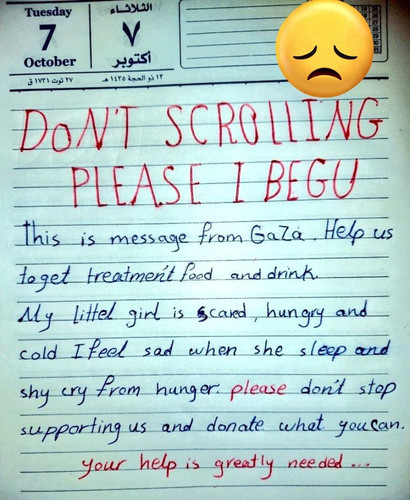 Tuesday الثلاثاء
7 ٧
October أكتوبر
٢٧ توت ١٧٣١ ق ١٢ ذو الحجة ١٤٣٥ هـ
DON'T SCROLLING
PLEASE I BEGU
This is message from GaZa. Help us
to get treatment food and drink.
My littel girl is scared, hungry and
cold I feel sad when she sleep and
shy cry from hunger. please don't stop
supporting us and donate what you can.
your help is greatly needed...